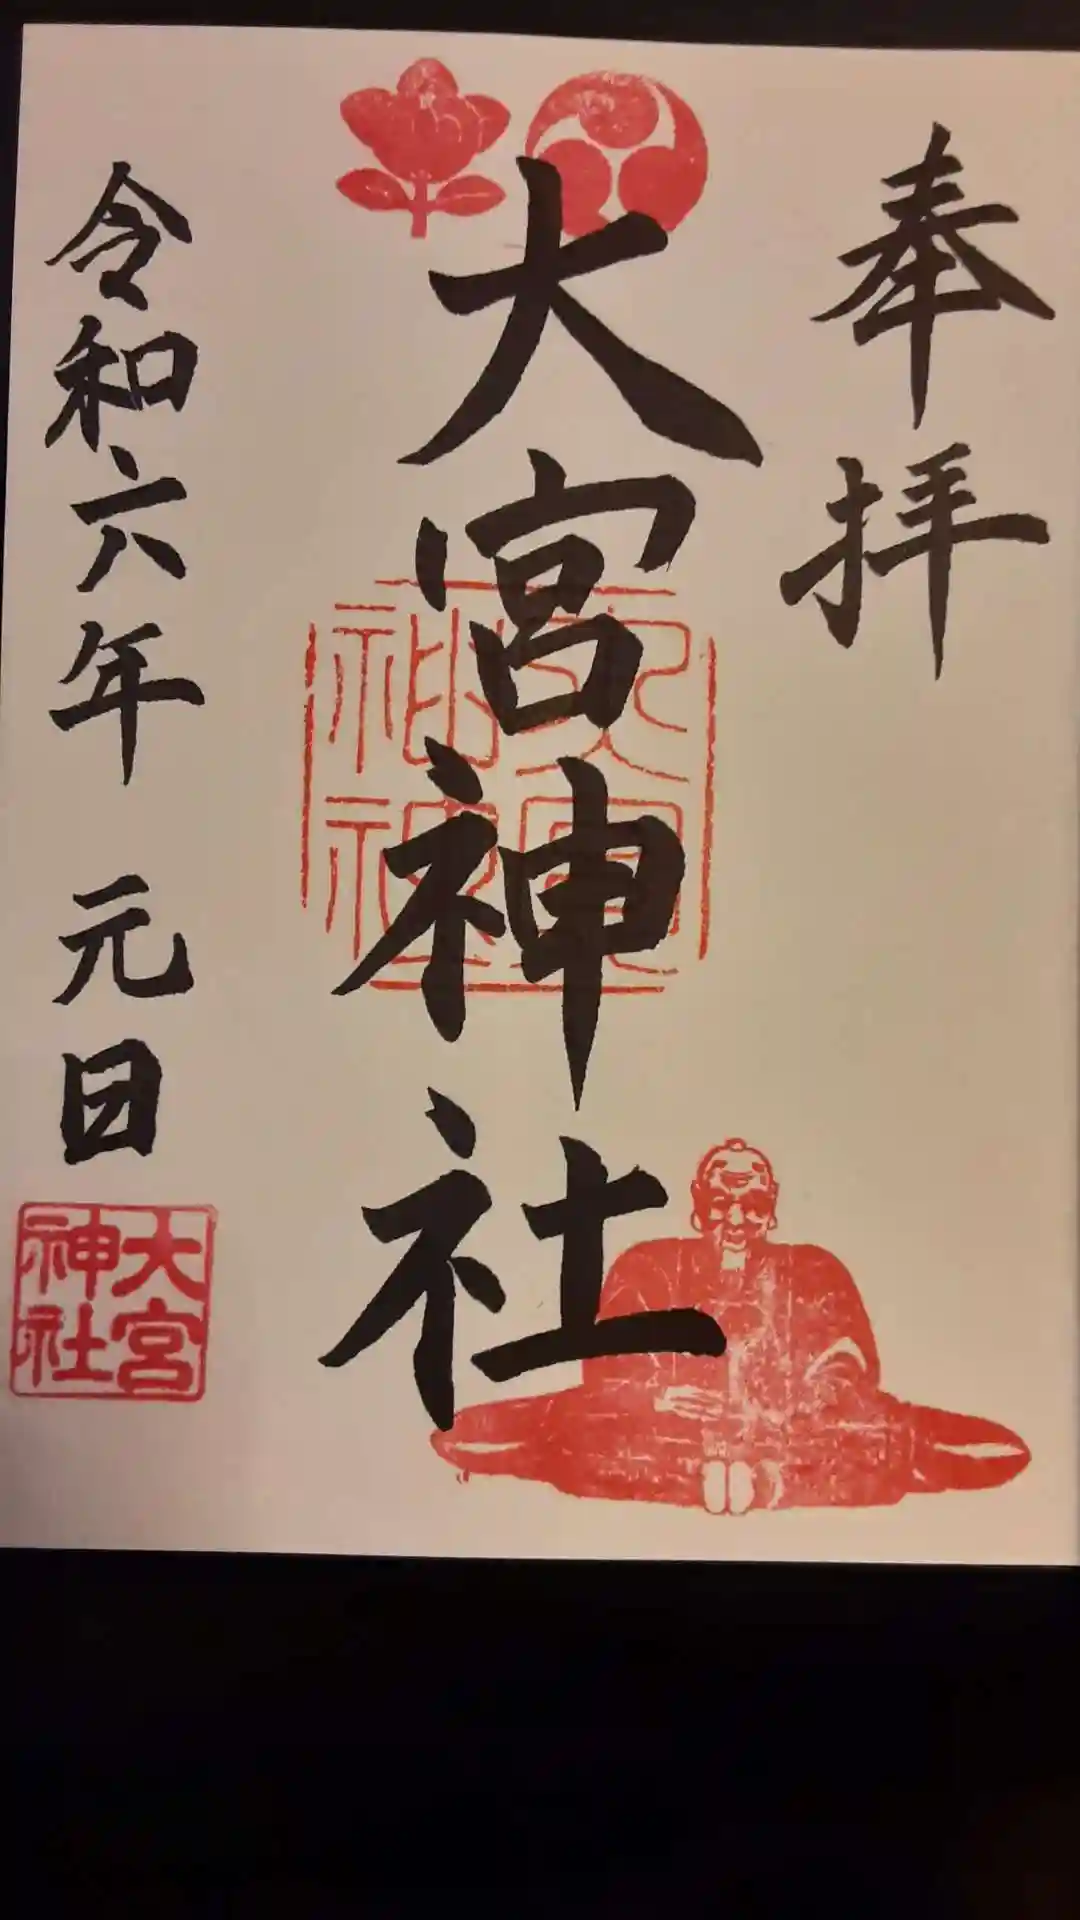 奉拝
大宮神社
大宮神社
令和六年 元日
大宮
神社